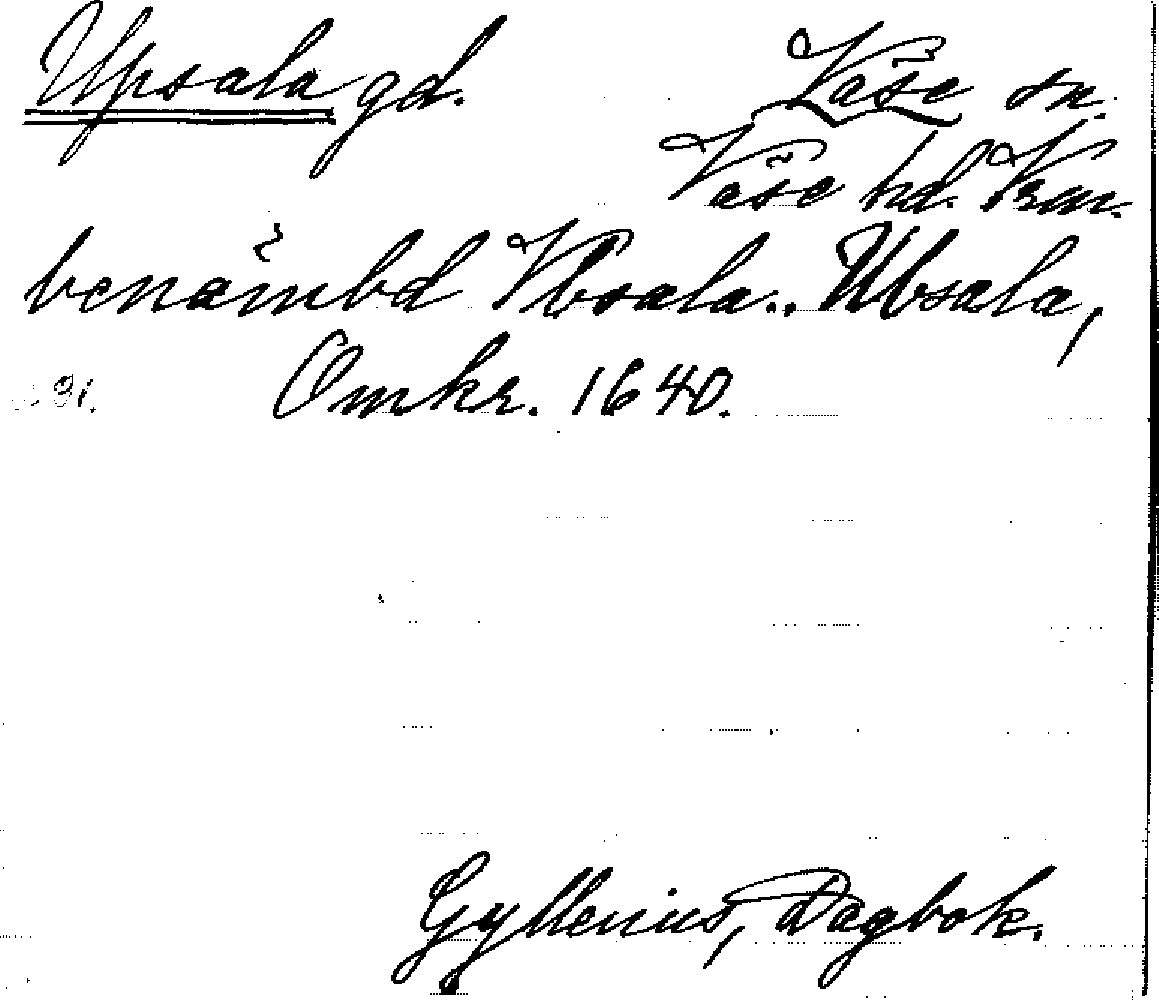 Upsala gd. Väse sn.
Väse hd. Vrm.
benämbd Vbsala.. Ubsala,
Omkr. 1640.
Gyllenius, Dagbok.